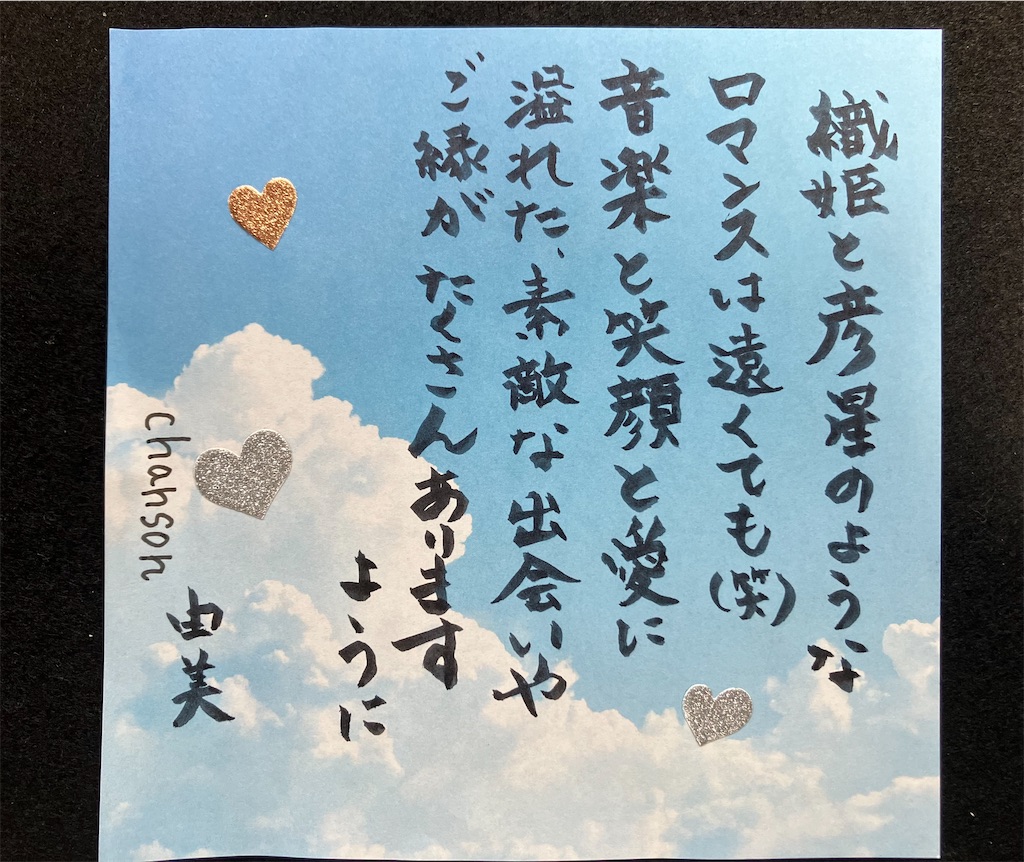 織姫と彦星のような
ロマンスは遠くても(笑)
音楽と笑顔と愛に
溢れた、素敵な出会いや
ご縁が たくさんあります
ように
由美
chahsoh